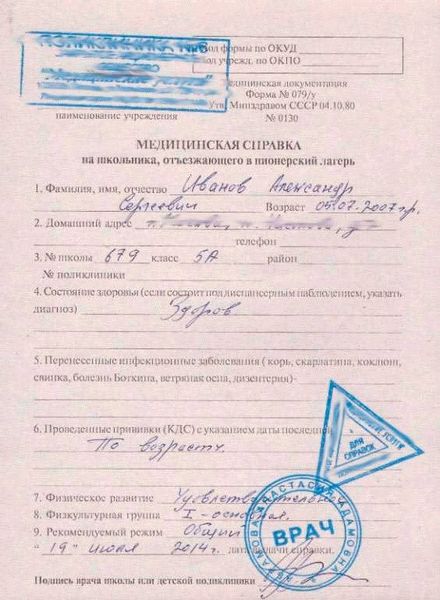 ПОЛИКЛИНИКА №6
Код формы по ОКУД
Код учрежд. по ОКПО
Медицинская документация
Форма № 079/у
Утв. Минздравом СССР 04.10.80
наименование учреждения № 0130
МЕДИЦИНСКАЯ СПРАВКА
на школьника, отъезжающего в пионерский лагерь
1. Фамилия, имя, отчество Иванов Александр
Сергеевич Возраст 05.07.2007 г.р.
2. Домашний адрес
телефон
3. № школы 679 класс 5А район
№ поликлиники
4. Состояние здоровья (если состоит под диспансерным наблюдением, указать
диагноз) Здоров
5. Перенесенные инфекционные заболевания ( корь, скарлатина, коклюш,
свинка, болезнь Боткина, ветряная оспа, дизентерия)-
6. Проведенные прививки (КДС) с указанием даты последней
По возрасту.
ДЛЯ
СПРАВОК
7. Физическое развитие Удовлетворительное
8. Физкультурная группа I - основная.
9. Рекомендуемый режим Общий
" 19 " июля 2014 г. дата выдачи справки.
ВРАЧ
Подпись врача школы или детской поликлиники